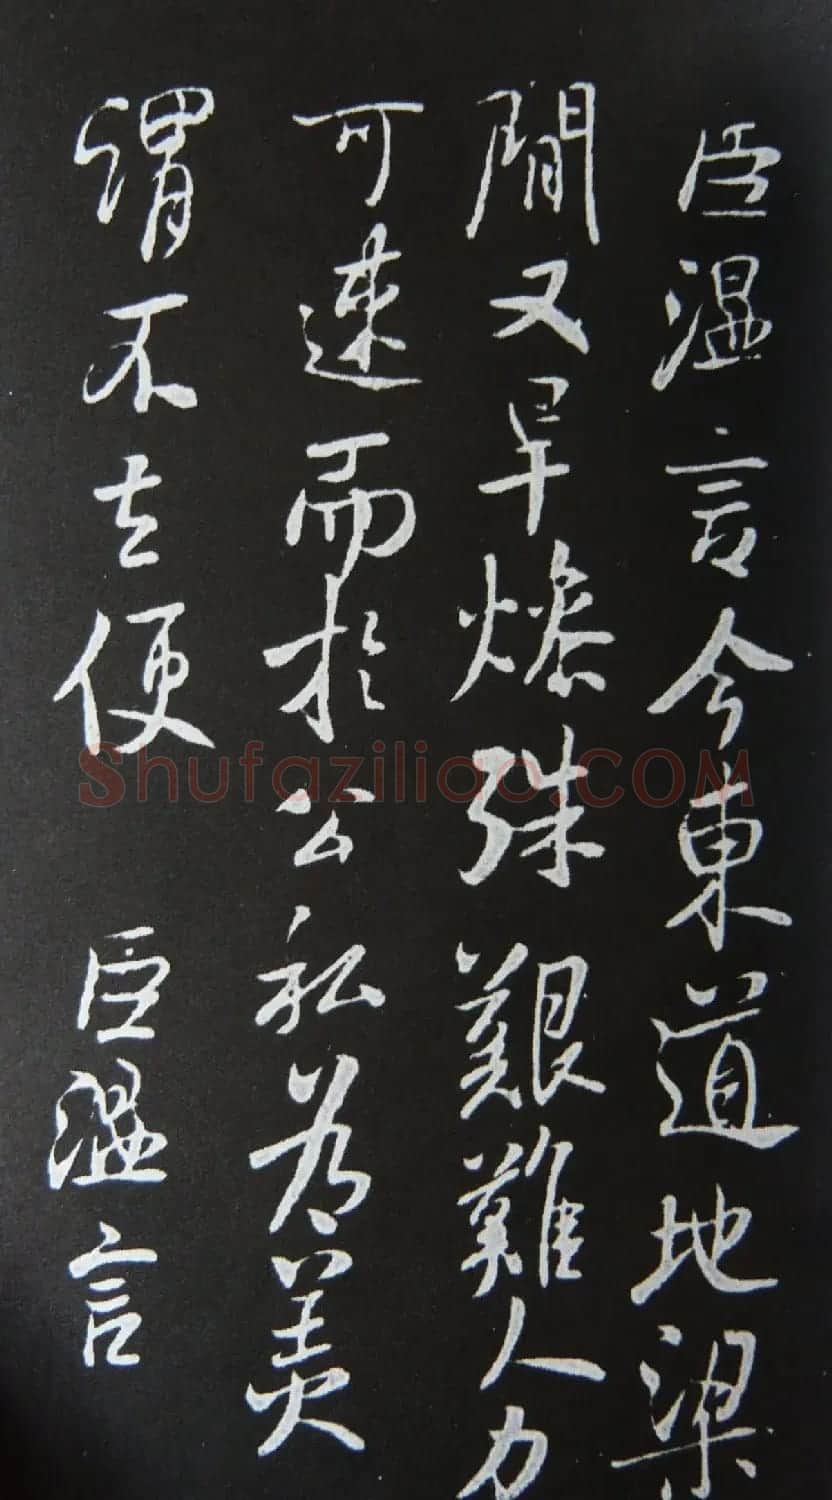 臣温言今東道地梁
間又旱燥殊艱難人力
可速而於公私為美
謂不去便 臣温言
Shufaziliao.COM